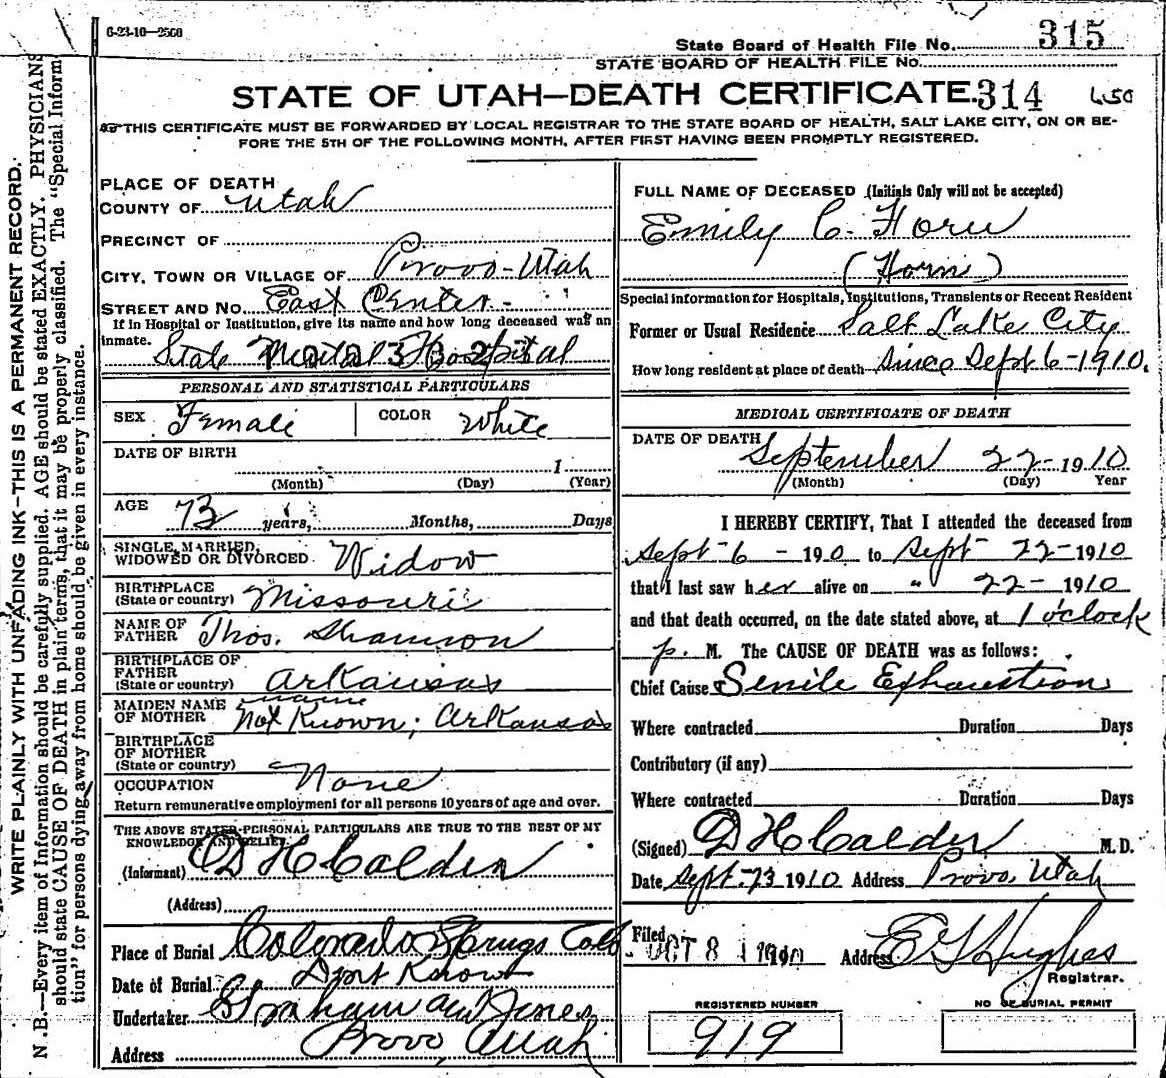 6-23-10—2500
State Board of Health File No. 315
STATE BOARD OF HEALTH FILE No.
STATE OF UTAH—DEATH CERTIFICATE. 314 650
THIS CERTIFICATE MUST BE FORWARDED BY LOCAL REGISTRAR TO THE STATE BOARD OF HEALTH, SALT LAKE CITY, ON OR BE-
FORE THE 5TH OF THE FOLLOWING MONTH, AFTER FIRST HAVING BEEN PROMPTLY REGISTERED.
WRITE PLAINLY WITH UNFADING INK—THIS IS A PERMANENT RECORD.
N.B.—Every item of Information should be carefully supplied. AGE should be stated EXACTLY. PHYSICIANS
should state CAUSE OF DEATH in plain terms, that it may be properly classified. The "Special Inform
tion" for persons dying away from home should be given in every instance.
PLACE OF DEATH
COUNTY OF Utah
PRECINCT OF
CITY, TOWN OR VILLAGE OF Provo-Utah
STREET AND No. East Center-
If in Hospital or Institution, give its name and how long deceased was an
inmate. State Mental Hospital
PERSONAL AND STATISTICAL PARTICULARS
SEX Female COLOR White
DATE OF BIRTH 1
(Month) (Day) (Year)
AGE 73 years, Months, Days
SINGLE, MARRIED,
WIDOWED OR DIVORCED Widow
BIRTHPLACE
(State or country) Missouri
NAME OF
FATHER Thos.
BIRTHPLACE OF
FATHER
(State or country) Arkansas
MAIDEN NAME
OF MOTHER Not Known; Arkansas
BIRTHPLACE
OF MOTHER
(State or country)
OCCUPATION None
Return remunerative employment for all persons 10 years of age and over.
THE ABOVE STATED PERSONAL PARTICULARS ARE TRUE TO THE BEST OF MY
KNOWLEDGE AND BELIEF.
(Informant) D H Calder
(Address)
Place of Burial Colorado Sprngs Colo
Date of Burial Dont Know
Undertaker Graham and Jones
Address Provo, Utah
FULL NAME OF DECEASED (Initials Only will not be accepted)
Emily C. Horn
(Horn)
Special information for Hospitals, Institutions, Transients or Recent Resident
Former or Usual Residence Salt Lake City
How long resident at place of death since Sept 6-1910.
MEDICAL CERTIFICATE OF DEATH
DATE OF DEATH September 22-1910
(Month) (Day) Year
I HEREBY CERTIFY, That I attended the deceased from
Sept-6-1910 to Sept-22-1910
that I last saw her alive on " 22-1910
and that death occurred, on the date stated above, at 1 o'clock
p. M. The CAUSE OF DEATH was as follows:
Chief Cause Senile Exhaustion
Where contracted Duration Days
Contributory (if any)
Where contracted Duration Days
(Signed) D H Calder M.D.
Date Sept. 23 1910 Address Provo, Utah
Filed OCT 8 1910 Address E G Hughes
Registrar.
REGISTERED NUMBER
919
NO OF BURIAL PERMIT